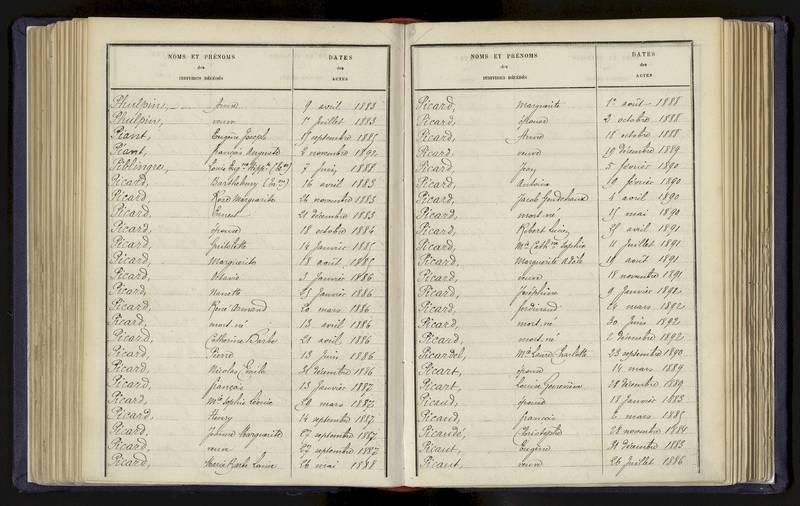 NOMS ET PRÉNOMS
des
INDIVIDUS DÉCÉDÉS
DATES
des
ACTES
Phulpin, Anne 9 avril 1883
Phulpin, veuve 1er Juillet 1883
Piant, Eugène Joseph 15 septembre 1885
Piant, français Auguste 2 novembre 1892
Piblinger, Louis 7 Juin 1888
Picard, Barthélemy 16 avril 1883
Picard, Rose Marguerite 26 novembre 1883
Picard, Ernest 21 décembre 1883
Picard, épouse 18 octobre 1884
Picard, 14 Janvier 1885
Picard, Marguerite 18 août 1885
Picard, Octavie 3 Janvier 1886
Picard, Nanette 23 Janvier 1886
Picard, René Armand 20 mars 1886
Picard, mort-né 13 avril 1886
Picard, Catherine Barbe 21 avril 1886
Picard, Pierre 13 Juin 1886
Picard, Nicolas Emile 31 décembre 1886
Picard, français 13 Janvier 1887
Picard, Mie Sophie Léonie 29 mars 1887
Picard, Henry 14 septembre 1887
Picard, Marguerite 27 septembre 1887
Picard, veuve 27 septembre 1887
Picard, Marie Barbe Laure 26 mai 1888
NOMS ET PRÉNOMS
des
INDIVIDUS DÉCÉDÉS
DATES
des
ACTES
Picard, Marguerite 1er août 1888
Picard, épouse 2 octobre 1888
Picard, Anne 18 octobre 1888
Picard, veuve 19 décembre 1889
Picard, Jean 5 février 1890
Picard, Antoine 10 février 1890
Picard, Jacob Goudchaux 4 avril 1890
Picard, mort-né 15 mai 1890
Picard, Robert Lucien 25 avril 1891
Picard, Mie Cathne Sophie 11 Juillet 1891
Picard, Marguerite Adèle 19 août 1891
Picard, veuve 18 novembre 1891
Picard, Joséphine 9 Janvier 1892
Picard, ferdinand 24 mars 1892
Picard, mort-né 30 Juin 1892
Picard, mort-né 2 décembre 1892
Picardel, Mie Louise Charlotte 23 septembre 1890
Picart, épouse 14 mars 1889
Picart, Louise Geneviève 28 décembre 1889
Picaud, épouse 18 Janvier 1883
Picaud, français 6 mars 1885
Picaudé, Christophe 28 novembre 1884
Picaut, Eugène 31 décembre 1883
Picaut, veuve 26 Juillet 1886